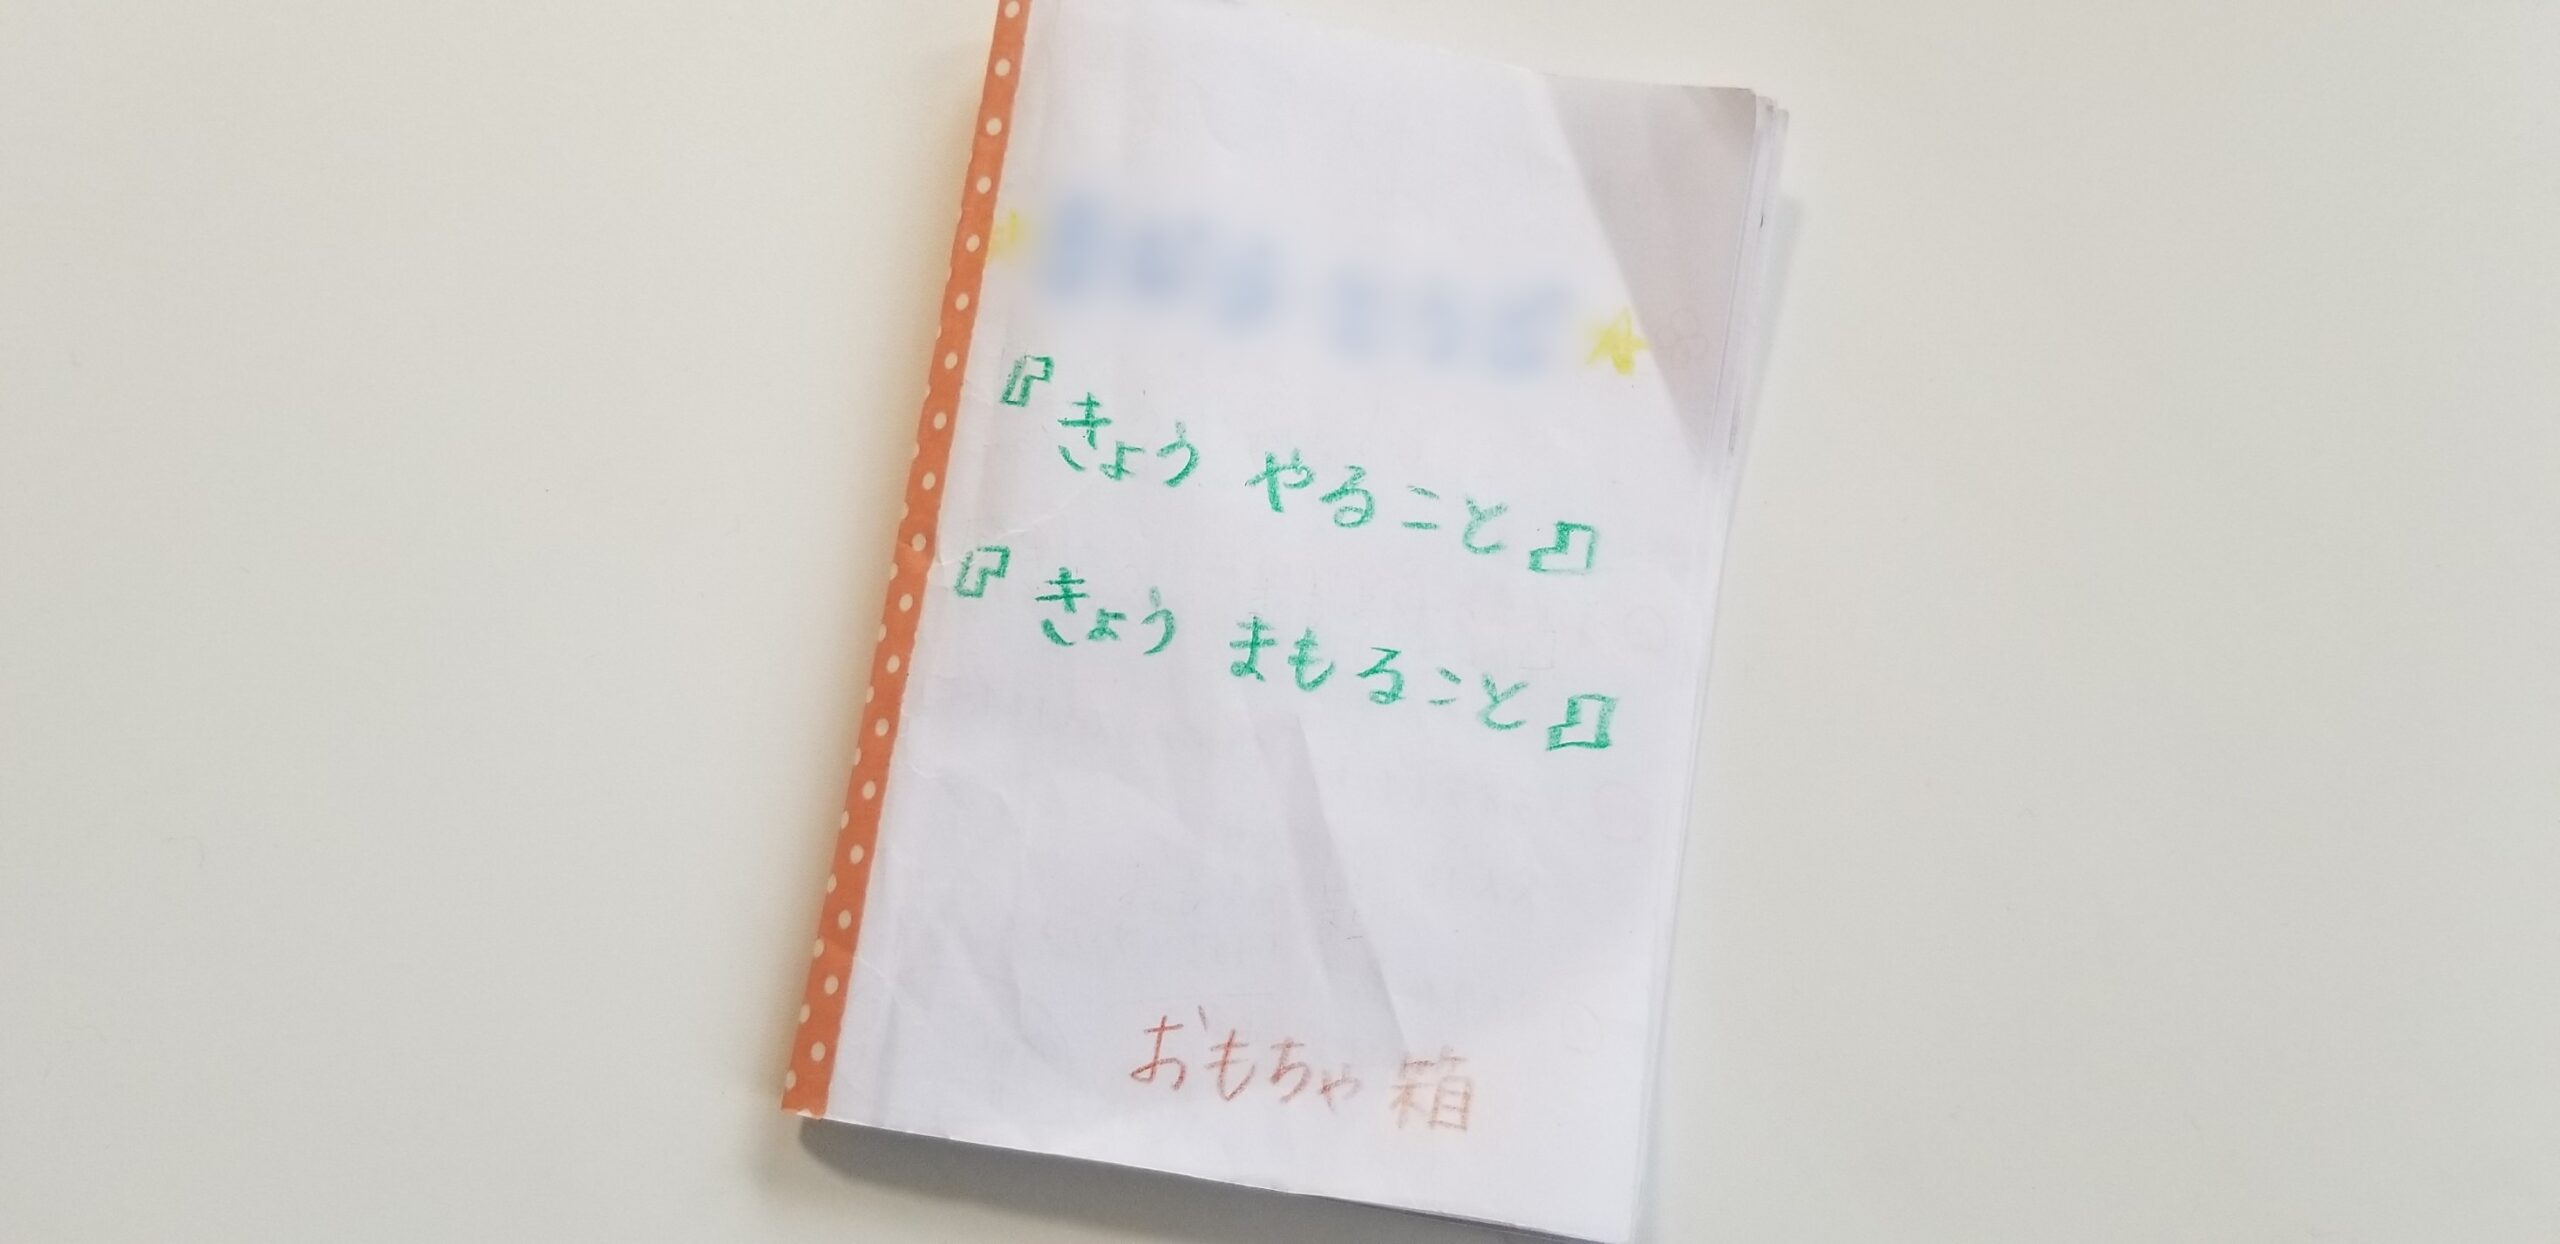 『きょう やること』
『きょう まもること』
おもちゃ箱